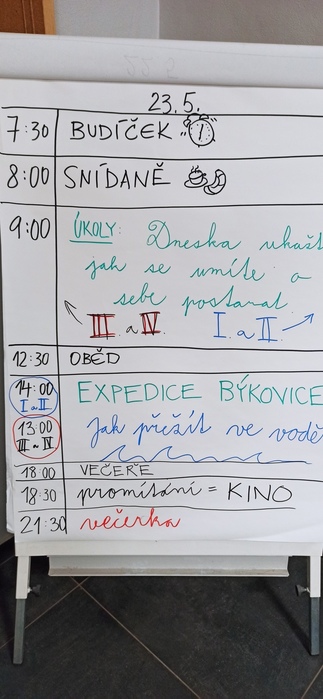 23.5.
7:30 BUDÍČEK
8:00 SNÍDANĚ
9:00 ÚKOLY: Dneska ukažt
jak se umíte o
sebe postarat
III. a IV. I. a II.
12:30 OBĚD
14:00 I. a II. EXPEDICE BÝKOVICE
13:00 III. a IV. Jak přežít ve vodě
18:00 VEČEŘE
18:30 promítání = KINO
21:30 večerka